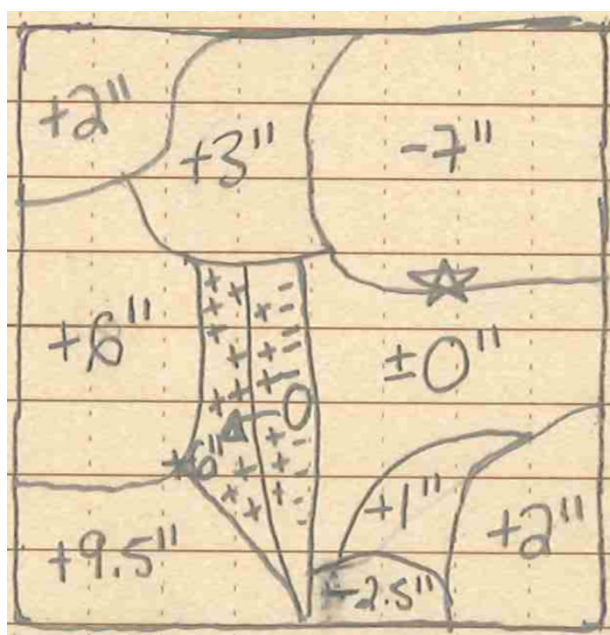 +2"
+3"
-7"
+6"
±0"
0
+6"
+1"
+2"
+9.5"
-2.5"